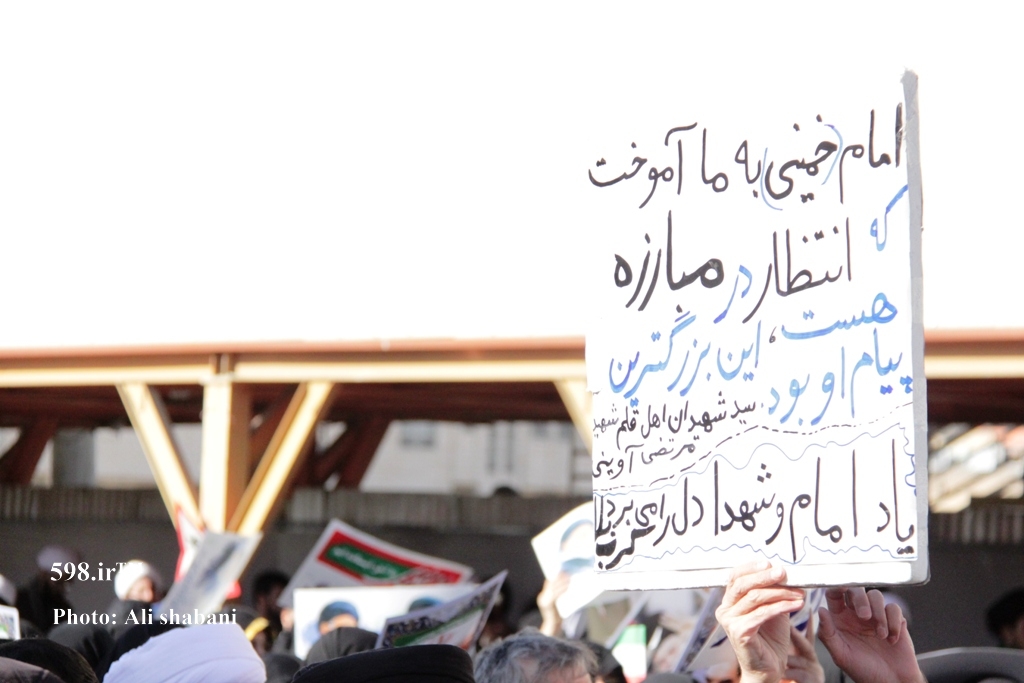 امام (خمینی) به ما آموخت
که انتظار در مبارزه
هست، این بزرگترین
پیام او بود.
سید شهیدان اهل قلم شهید
مرتضی آوینی
یاد امام و شهدا دل را می برد
598.ir
Photo: Ali shabani